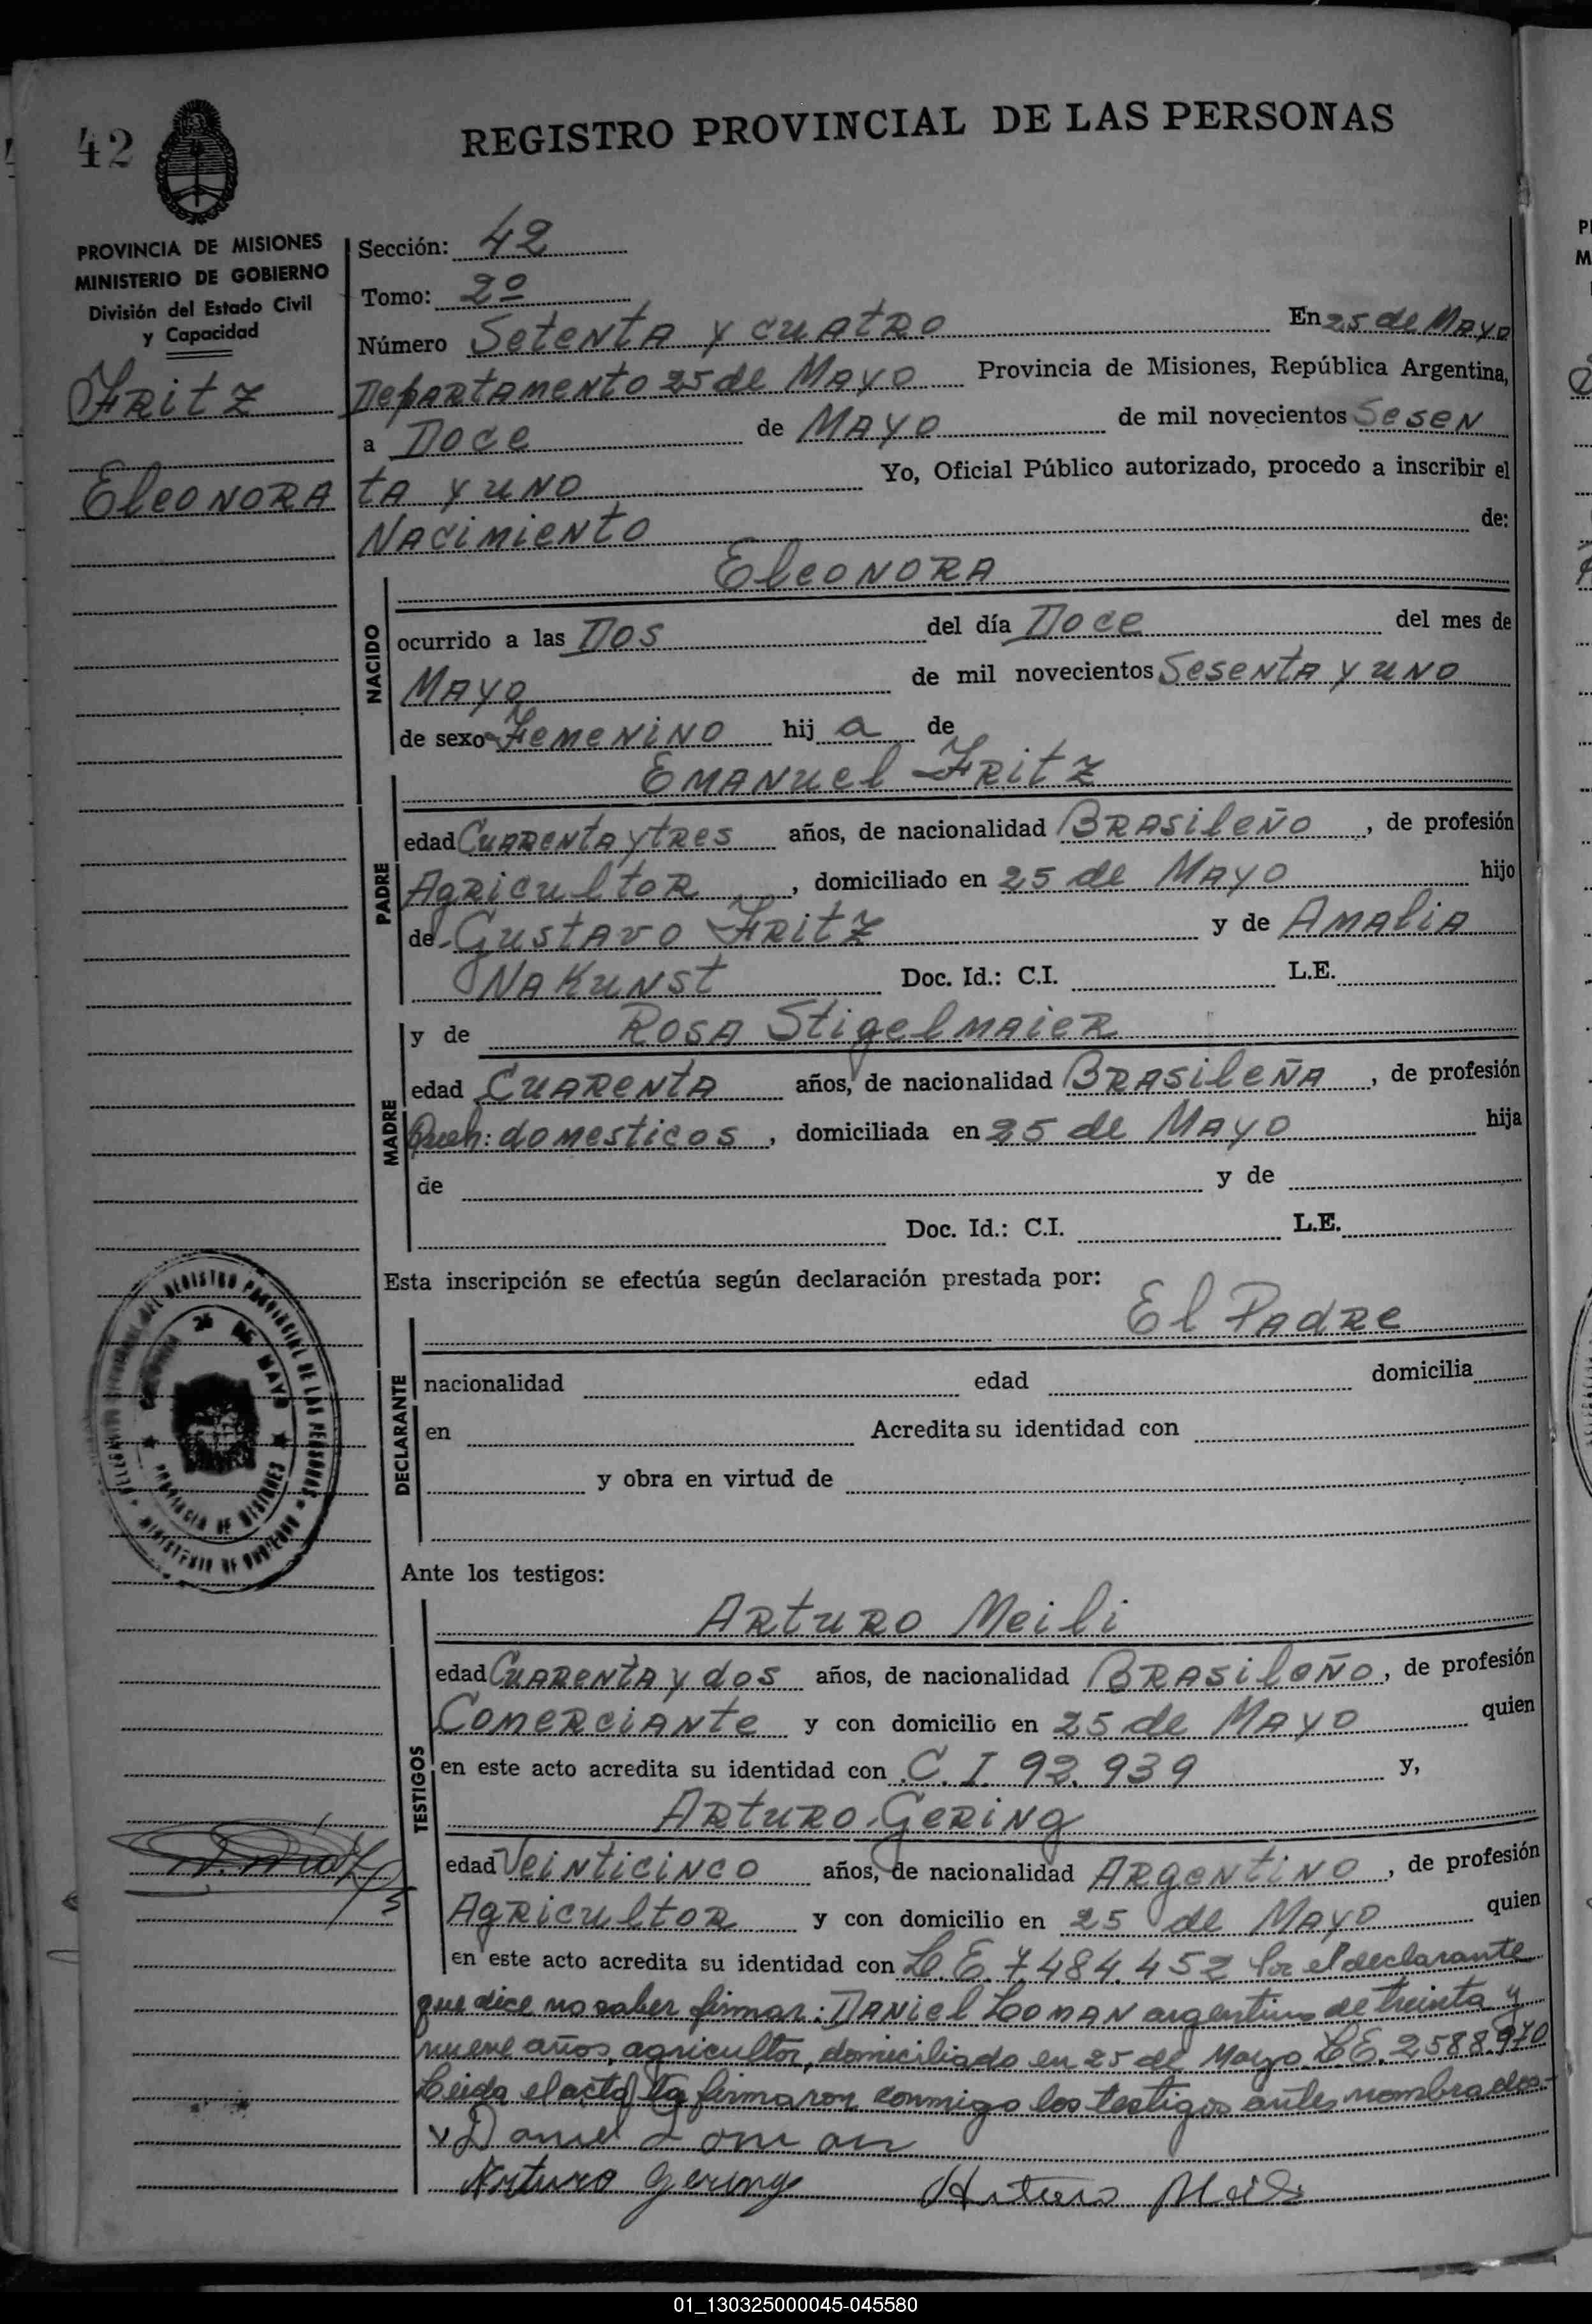 42
REGISTRO PROVINCIAL DE LAS PERSONAS
PROVINCIA DE MISIONES
MINISTERIO DE GOBIERNO
División del Estado Civil
y Capacidad
Fritz
Eleonora
Sección: 42
Tomo: 2º
Número Setenta y cuatro En 25 de Mayo
Departamento 25 de Mayo Provincia de Misiones, República Argentina,
a Doce de Mayo de mil novecientos Sesen
ta y uno Yo, Oficial Público autorizado, procedo a inscribir el
Nacimiento de:
Eleonora
NACIDO
ocurrido a las Dos del día Doce del mes de
Mayo de mil novecientos Sesenta y uno
de sexo Femenino hij a de
Emanuel Fritz
PADRE
edad Cuarenta y tres años, de nacionalidad Brasileño, de profesión
Agricultor, domiciliado en 25 de Mayo hijo
de Gustavo Fritz y de Amalia
Nakunst Doc. Id.: C.I. L.E.
y de Rosa Stigelmaier
MADRE
edad Cuarenta años, de nacionalidad Brasileña, de profesión
Queh: domesticos, domiciliada en 25 de Mayo hija
de y de
Doc. Id.: C.I. L.E.
Esta inscripción se efectúa según declaración prestada por:
El Padre
DECLARANTE
nacionalidad edad domicilia
en Acredita su identidad con
y obra en virtud de
REGISTRO PROVINCIAL DE LAS PERSONAS
25 DE MAYO
PROVINCIA DE MISIONES
MINISTERIO DE GOBIERNO
Ante los testigos:
Arturo Meili
TESTIGOS
edad Cuarenta y dos años, de nacionalidad Brasileño, de profesión
Comerciante y con domicilio en 25 de Mayo quien
en este acto acredita su identidad con C. I. 92.939 y,
Arturo Gering
edad Veinticinco años, de nacionalidad Argentino, de profesión
Agricultor y con domicilio en 25 de Mayo quien
en este acto acredita su identidad con L.E. 7.484.452 Por el declarante
que dice no saber firmar: Daniel Loman argentino de treinta y
nueve años, agricultor, domiciliado en 25 de Mayo L.E. 2588.970
Leida el acta la firmaron conmigo los testigos antes nombrados.-
x Daniel Loman
Arturo Gering Arturo Meili
01_130325000045-045580